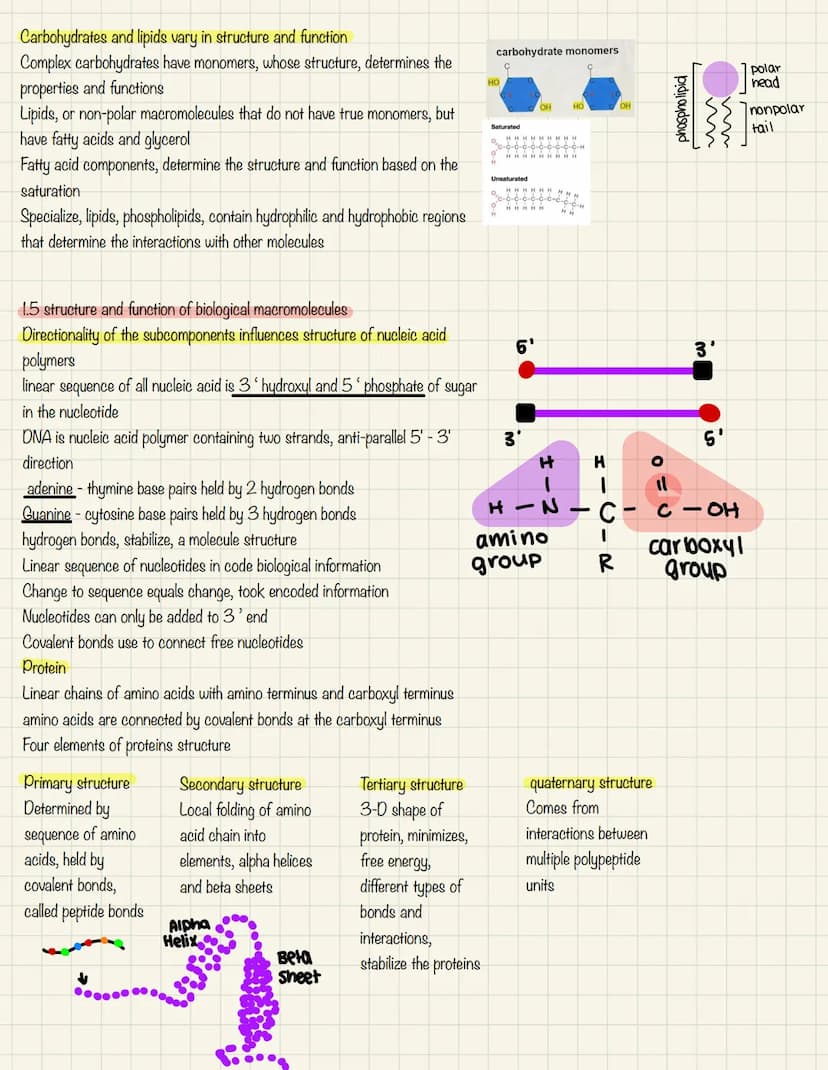 Carbohydrates and lipids vary in structure and function
Complex carbohydrates have monomers, whose structure, determines the
properties and functions
Lipids, or non-polar macromolecules that do not have true monomers, but
have fatty acids and glycerol
Fatty acid components, determine the structure and function based on the
saturation
Specialize, lipids, phospholipids, contain hydrophilic and hydrophobic regions
that determine the interactions with other molecules
carbohydrate monomers
C
C
HO
OH
HO
OH
Saturated
Unsaturated
phospholipid
polar
head
nonpolar
tail
1.5 structure and function of biological macromolecules
Directionality of the subcomponents influences structure of nucleic acid
polymers
linear sequence of all nucleic acid is 3 ' hydroxyl and 5 ' phosphate of sugar
in the nucleotide
DNA is nucleic acid polymer containing two strands, anti-parallel 5' - 3'
direction
adenine - thymine base pairs held by 2 hydrogen bonds
Guanine - cytosine base pairs held by 3 hydrogen bonds
hydrogen bonds, stabilize, a molecule structure
Linear sequence of nucleotides in code biological information
Change to sequence equals change, took encoded information
Nucleotides can only be added to 3 ' end
Covalent bonds use to connect free nucleotides
5'
3'
3'
5'
H H O
H - N - C - C - OH
R
amino
group
carboxyl
group
Protein
Linear chains of amino acids with amino terminus and carboxyl terminus
amino acids are connected by covalent bonds at the carboxyl terminus
Four elements of proteins structure
Primary structure
Determined by
sequence of amino
acids, held by
covalent bonds,
called peptide bonds
Secondary structure
Local folding of amino
acid chain into
elements, alpha helices
and beta sheets
Alpha
Helix
Beta
Sheet
Tertiary structure
3-D shape of
protein, minimizes,
free energy,
different types of
bonds and
interactions,
stabilize the proteins
quaternary structure
Comes from
interactions between
multiple polypeptide
units